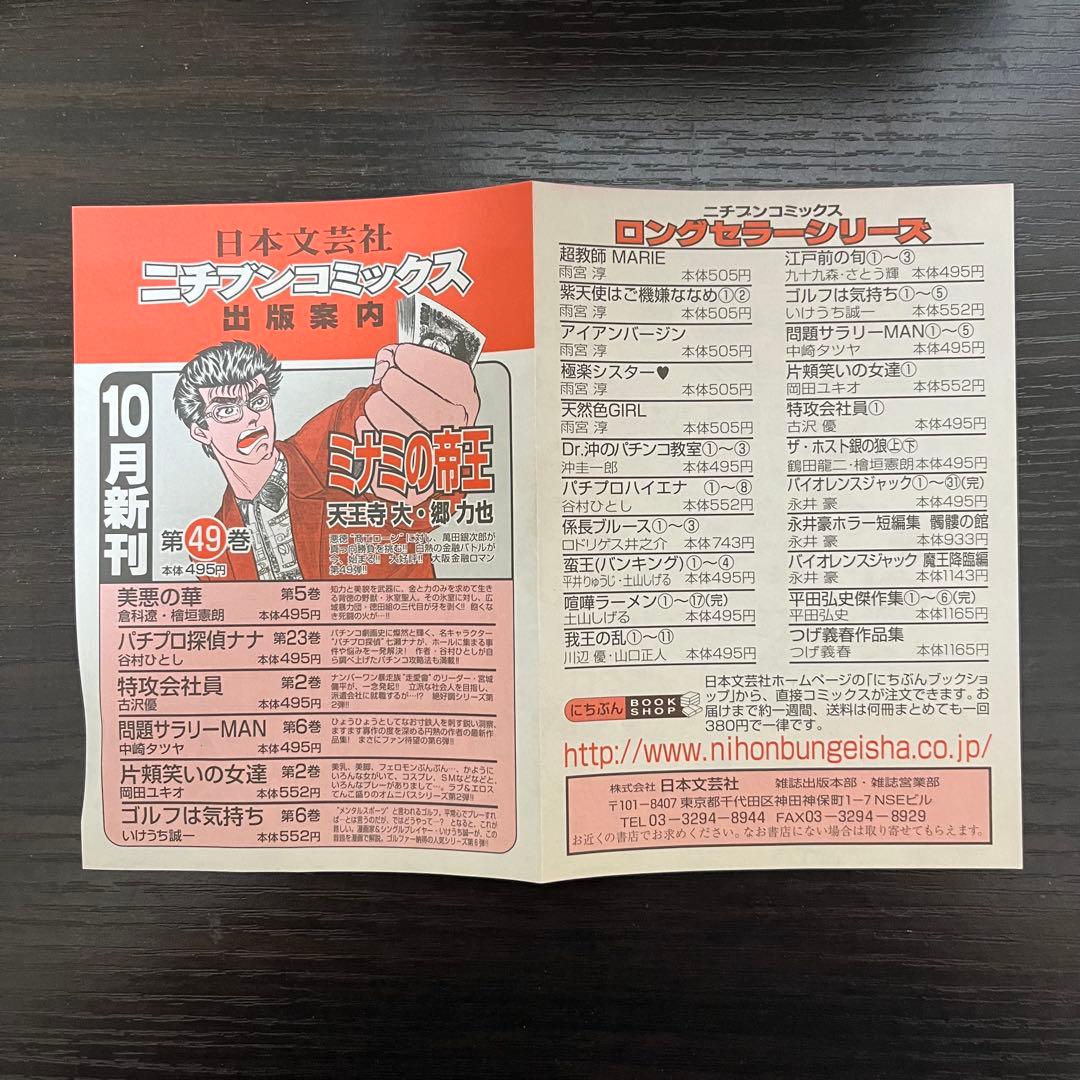 日本文芸社
ニチブンコミックス
出版案内
10月新刊
ミナミの帝王
天王寺 大・郷 力也
第49巻
本体495円
悪徳“商工ローン”に対し、萬田銀次郎が
真っ向勝負を挑む!! 白熱の金融バトルが
今、始まる!! 大好評!! 大阪金融ロマン
第49弾!!
美悪の華 第5巻
倉科遼・檜垣憲朗 本体495円
知力と美貌を武器に。金と力のみを求めて生き
る背徳の野獣・氷室聖人。その氷室に対し、広
域暴力団・徳田組の三代目が牙を剥く!! 飽くな
き死闘の火が…!!
パチプロ探偵ナナ 第23巻
谷村ひとし 本体495円
パチンコ劇画史に燦然と輝く、名キャラクター
“パチプロ探偵”七瀬ナナが、ホールに集まる事
件や悩みを一発解決! 作者・谷村ひとしが自
ら調べ上げたパチンコ攻略法も満載!!
特攻会社員 第2巻
古沢優 本体495円
ナンバーワン暴走族“走愛會”のリーダー・宮城
偏平が、一念発起!! 立派な社会人を目指し、
派遣会社に就職するが…!? 絶好調シリーズ第
2弾!!
問題サラリーMAN 第6巻
中崎タツヤ 本体495円
ひょうひょうとしてなお寸鉄人を刺す鋭い洞察、
ますます寡作の度を深める円熟の作者の最新作
品集! まさにファン待望の第6弾!!
片頬笑いの女達 第2巻
岡田ユキオ 本体552円
美乳、美脚、フェロモンぷんぷん…、かように
いろんな女がいて、コスプレ、SMなどなどと、
いろんなプレーがありまして…。ラブ&エロス
てんこ盛りのオムニバスシリーズ第2弾!!
ゴルフは気持ち 第6巻
いけうち誠一 本体552円
“メンタルスポーツ”と言われるゴルフ。平常心でプレーすれ
ば―とは言うのだが、ではどうやって―? となると、これが
難しい。漫画家&シングルプレイヤー・いけうち誠一が、この
難題を漫画で解説。ゴルファー納得の人気シリーズ第6弾!!
ニチブンコミックス
ロングセラーシリーズ
超教師 MARIE
雨宮 淳 本体505円
紫天使はご機嫌ななめ①②
雨宮 淳 本体505円
アイアンバージン
雨宮 淳 本体505円
極楽シスター♥
雨宮 淳 本体505円
天然色GIRL
雨宮 淳 本体505円
Dr.沖のパチンコ教室①〜③
沖圭一郎 本体495円
パチプロハイエナ ①〜⑧
谷村ひとし 本体552円
係長ブルース①〜③
ロドリゲス井之介 本体743円
蛮王(バンキング)①〜④
平井りゅうじ・土山しげる 本体495円
喧嘩ラーメン①〜⑰(完)
土山しげる 本体495円
我王の乱①〜⑪
川辺 優・山口正人 本体495円
江戸前の旬①〜③
九十九森・さとう輝 本体495円
ゴルフは気持ち①〜⑤
いけうち誠一 本体552円
問題サラリーMAN①〜⑤
中崎タツヤ 本体495円
片頬笑いの女達①
岡田ユキオ 本体552円
特攻会社員①
古沢 優 本体495円
ザ・ホスト銀の狼㊤㊦
鶴田龍二・檜垣憲朗 本体495円
バイオレンスジャック①〜㉛(完)
永井 豪 本体495円
永井豪ホラー短編集 髑髏の館
永井 豪 本体933円
バイオレンスジャック 魔王降臨編
永井 豪 本体1143円
平田弘史傑作集①〜⑥(完)
平田弘史 本体1165円
つげ義春作品集
つげ義春 本体1165円
にちぶん BOOK SHOP
日本文芸社ホームページの「にちぶんブックショ
ップ」から、直接コミックスが注文できます。お
届けまで約一週間、送料は何冊まとめても一回
380円で一律です。
http://www.nihonbungeisha.co.jp/
株式会社 日本文芸社 雑誌出版本部・雑誌営業部
〒101-8407 東京都千代田区神田神保町1-7 NSEビル
TEL 03-3294-8944 FAX03-3294-8929
お近くの書店でお求めください。なお書店にない場合は取り寄せてもらえます。